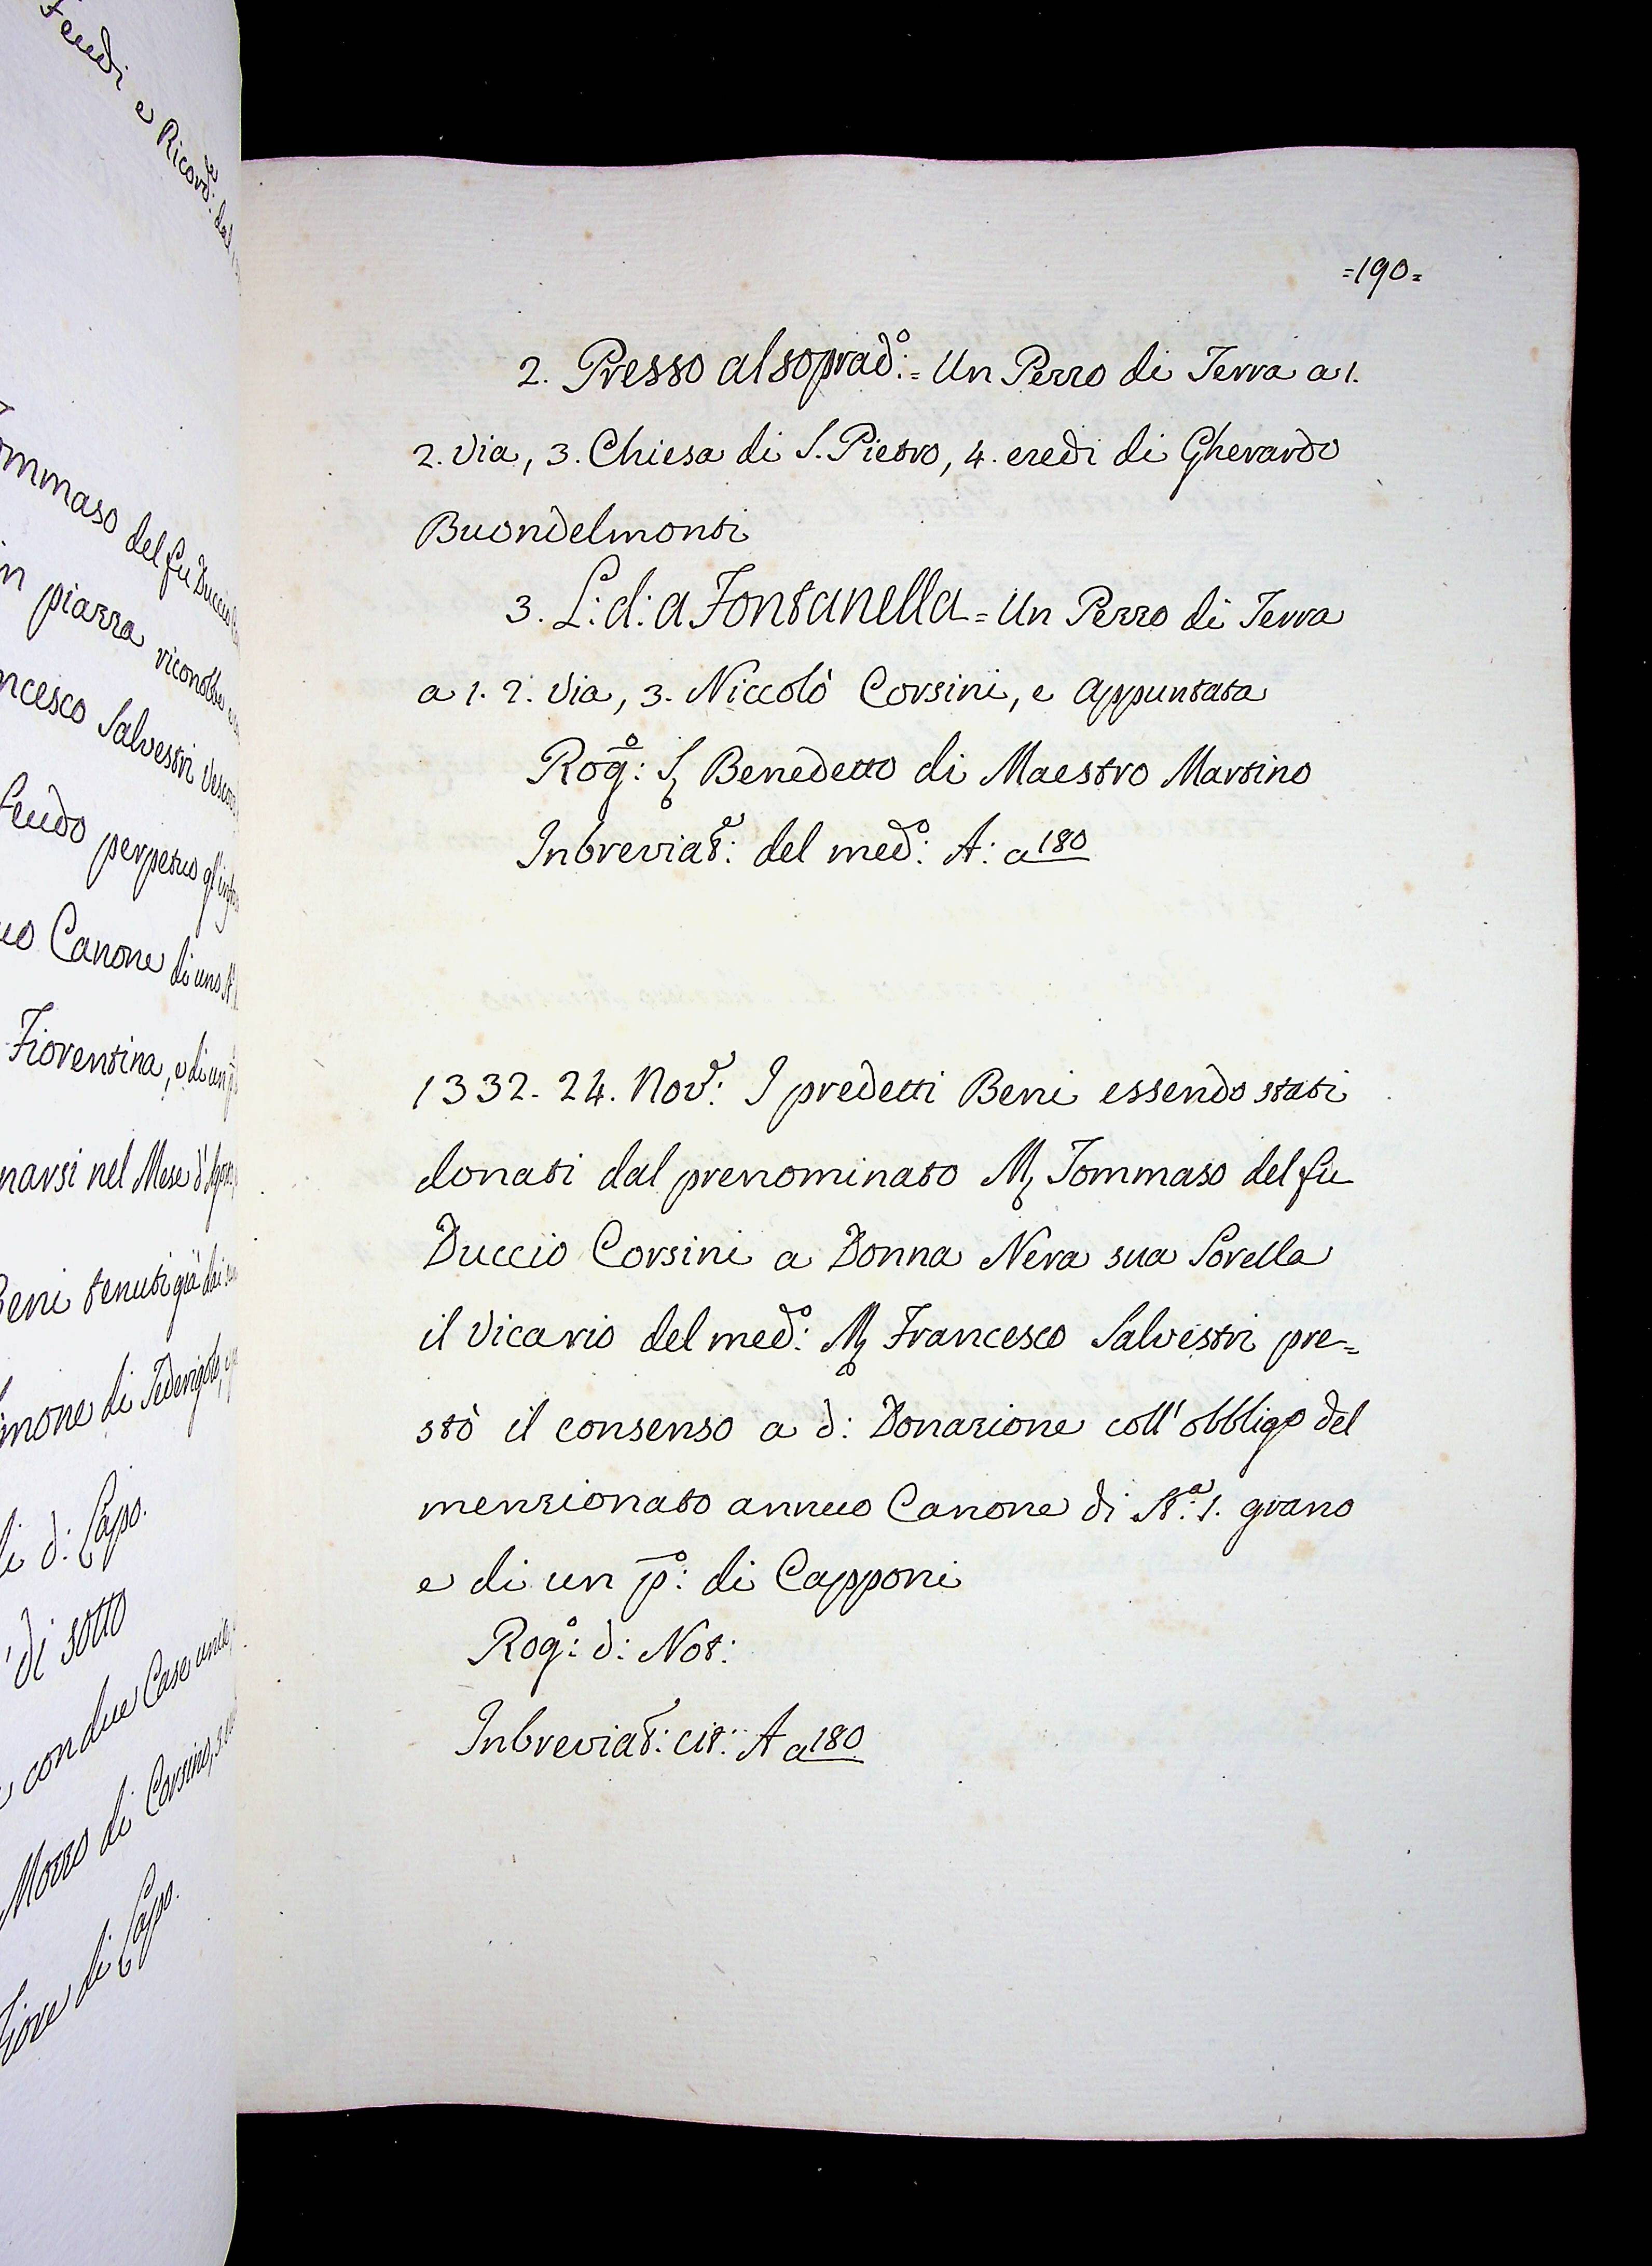 Feudi e Ricord.e: dal
ommaso del fu Duccio
in piazza riconobbe
ncesco Salvestri Vescovo
feudo perpetuo gl'infra
uo Canone di uno
Fiorentina, e di un
narsi nel Mese d'Agosto
Beni tenuti già dai
imone di Federigoto,
di d: Capo.
di sotto
con due Case unite,
Mozzo di Corsino,
Fiore di Capo.
=190=
2. Presso al soprad.o:= Un Pezzo di Terra a 1.
2. via, 3. Chiesa di S. Pietro, 4. eredi di Gherardo
Buondelmonti
3. L: d: a Fontanella = Un Pezzo di Terra
a 1. 2. via, 3. Niccolò Corsini, e appuntata
Rog.o: S. Benedetto di Maestro Martino
Inbreviat.e: del med.o: A: a 180
1332. 24. Nov.e: I predetti Beni essendo stati
donati dal prenominato M. Tommaso del fu
Duccio Corsini a Donna Nera sua Sorella
il Vicario del med.o: M. Francesco Salvestri pre=
stò il consenso a d: Donazione coll' obbligo del
menzionato annuo Canone di St.a: 1. grano
e di un p.o: di Capponi
Rog.o: d: Not:
Inbreviat.e: cit: A a 180